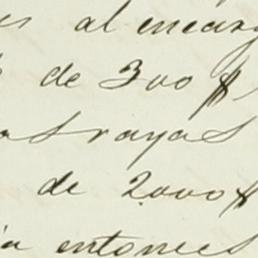 es al encarg
de 300 $
as rayas
de 2.000 $
ia entonces